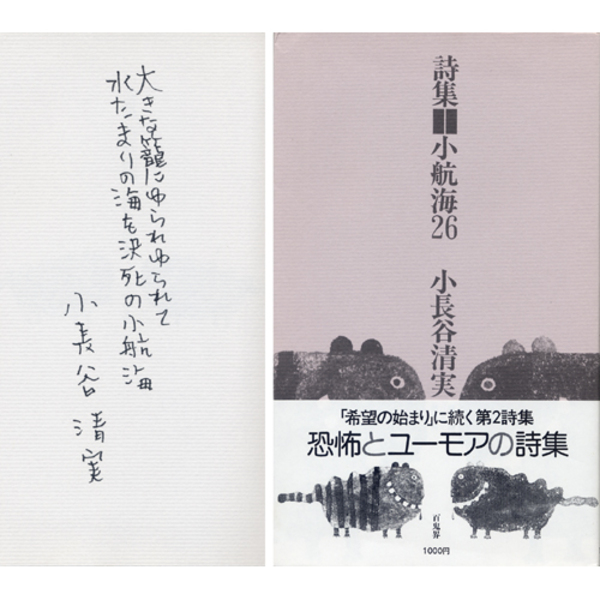 大きな籠にゆられゆられて
水たまりの海を決死の小航海
小長谷清実
詩集 小航海26
小長谷清実
「希望の始まり」に続く第2詩集
恐怖とユーモアの詩集
百鬼界
1000円